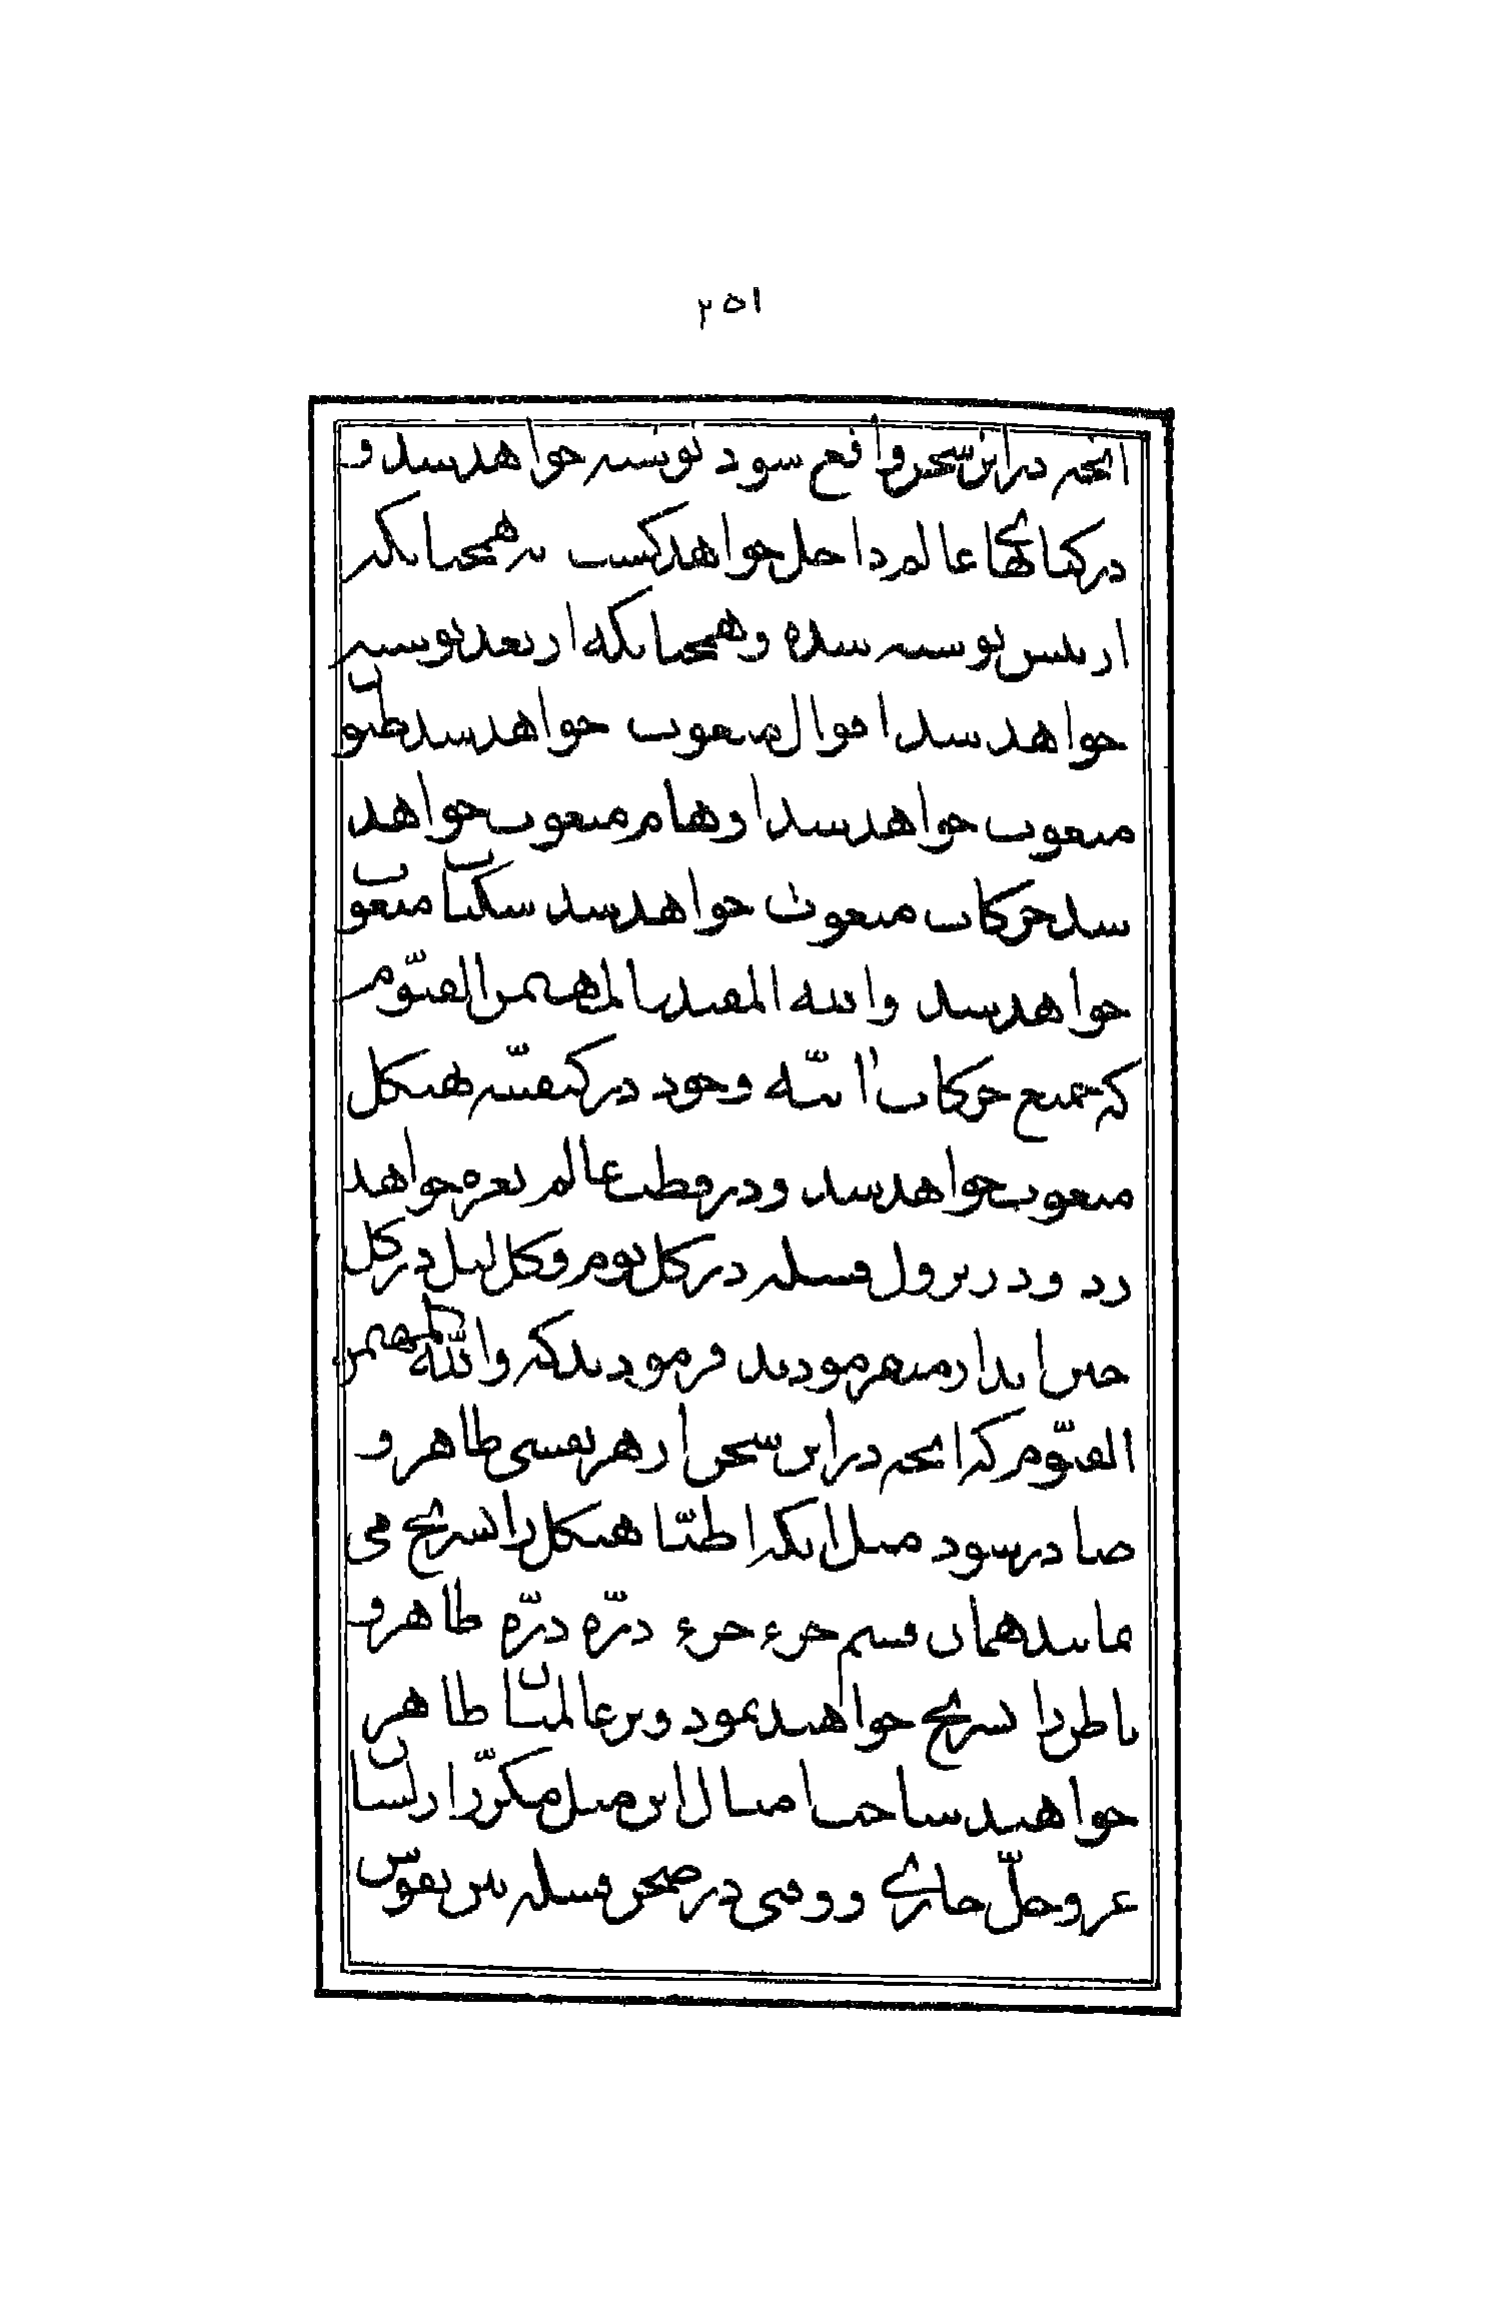 ۲۵۱
انچه در این سجن واقع شود نوشته خواهد شد و
در کتابهای عالم داخل خواهد کشت نه همچنانکه
از پیش نوشته شده و همچنانکه از بعد نوشته
خواهد شد اقوال مبعوث خواهد شد ظنون
مبعوث خواهد شد اوهام مبعوث خواهد
شد حرکات مبعوث خواهد شد سکنات مبعوث
خواهد شد والله المقتدر المهیمن القیّوم
که جمیع حرکات اشیّه وجود در کیفیّه هیکل
مبعوث خواهد شد و در قطب عالم نعره خواهد
زد و در نزول فسله در کل یوم و کل لیل در کل
حین اندار میفرمودند فرمودند که والله المهیمن
القیّوم که انچه در این سجن از هر نفسی ظاهر و
صادر شود مثل انکه اطبّا هیکل را تشریح می
نمایند همان قسم جزء جزء ذرّه ذرّه ظاهر و
باطن را تشریح خواهند نمود و بر عالمیان ظاهر
خواهند ساخت امثال این مثل مکرّر از لسان
عز و جلّ جاری و وقتی در صحن فسله بین نفوس